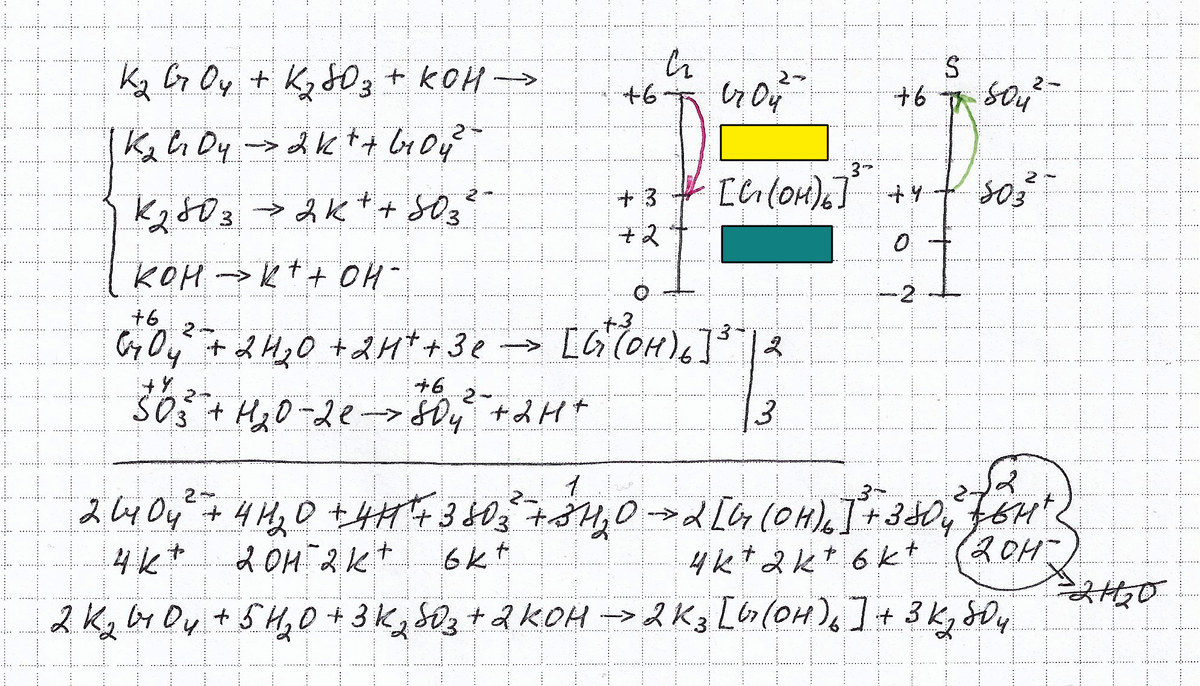 K₂CrO₄ + K₂SO₃ + KOH →
K₂CrO₄ → 2K⁺ + CrO₄²⁻
K₂SO₃ → 2K⁺ + SO₃²⁻
KOH → K⁺ + OH⁻
Cr
+6 CrO₄²⁻
+3 [Cr(OH)₆]³⁻
+2
0
S
+6 SO₄²⁻
+4 SO₃²⁻
0
-2
+6 +3
CrO₄²⁻ + 2H₂O + 2H⁺ + 3e → [Cr(OH)₆]³⁻ | 2
+4 +6
SO₃²⁻ + H₂O - 2e → SO₄²⁻ + 2H⁺ | 3
1 2
2CrO₄²⁻ + 4H₂O + 4H⁺ + 3SO₃²⁻ + 3H₂O → 2[Cr(OH)₆]³⁻ + 3SO₄²⁻ + 6H⁺
4K⁺ 2OH⁻ 2K⁺ 6K⁺ 4K⁺ 2K⁺ 6K⁺ 2OH⁻
2H₂O
2K₂CrO₄ + 5H₂O + 3K₂SO₃ + 2KOH → 2K₃[Cr(OH)₆] + 3K₂SO₄